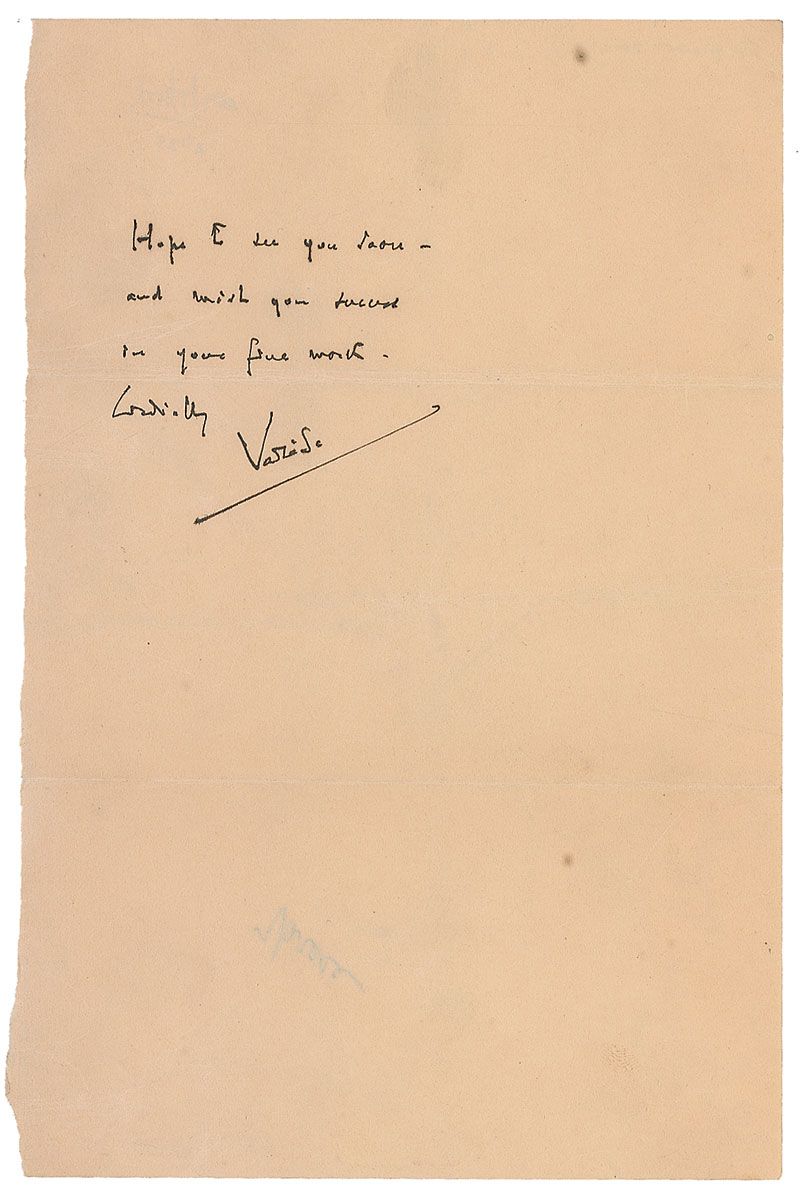 Hope to see you soon -
and wish you success
in your fine work -
Cordially
Varèse